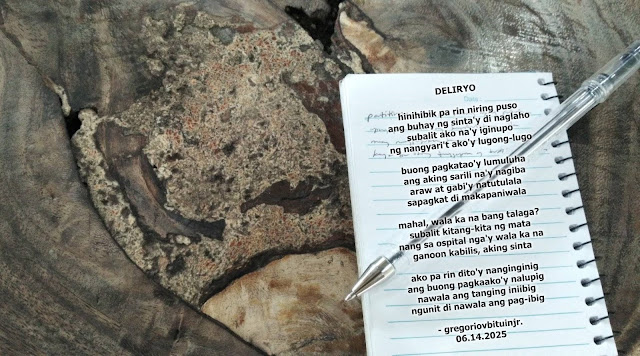 DELIRYO
hinihibik pa rin niring puso
ang buhay ng sinta'y di naglaho
subalit ako na'y iginupo
ng nangyari't ako'y lugong-lugo
buong pagkatao'y lumuluha
ang aking sarili na'y nagiba
araw at gabi'y natutulala
sapagkat di makapaniwala
mahal, wala ka na bang talaga?
subalit kitang-kita ng mata
nang sa ospital nga'y wala ka na
ganoon kabilis, aking sinta
ako pa rin dito'y nanginginig
ang buong pagkaako'y nalupig
nawala ang tanging iniibig
ngunit di nawala ang pag-ibig
- gregoriovbituinjr.
06.14.2025